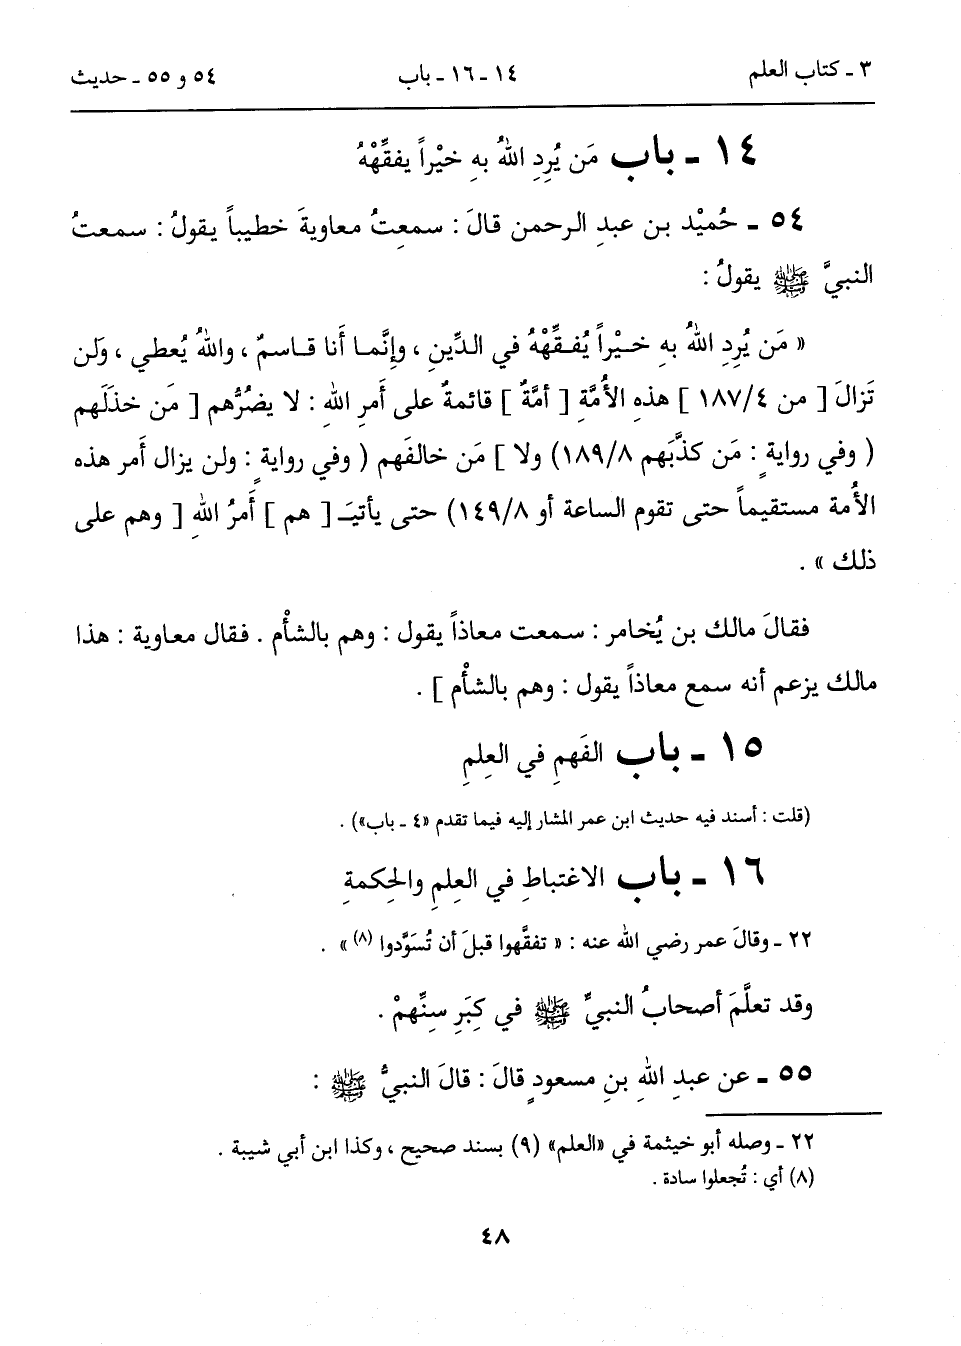 ٣ ـ كتاب العلم
١٤ ـ ١٦ ـ باب
٥٤ و ٥٥ ـ حديث
١٤ ـ باب مَن يُرِدِ اللهُ بهِ خيْراً يفقِّهْهُ
٥٤ ـ حُميْد بن عبدِ الرحمن قالَ : سمعتُ معاويةَ خطيباً يقولُ : سمعتُ
النبيَّ ﷺ يقولُ :
« مَن يُرِدِ اللهُ بهِ خيْراً يُفقِّهْهُ في الدِّينِ ، وإِنَّما أنا قاسمٌ ، واللهُ يُعطي ، ولَن
تَزالَ [ من ١٨٧/٤ ] هذهِ الأمَّةِ [ أمَّةٌ ] قائمةٌ على أَمرِ اللهِ : لا يضرُّهم [ مَن خذَلَهم
( وفي روايةٍ : مَن كذَّبَهم ١٨٩/٨) ولا ] مَن خالفَهم ( وفي روايةٍ : ولن يزال أَمر هذه
الأُمة مستقيماً حتى تقوم الساعة أو ١٤٩/٨) حتى يأتيَـ [ هم ] أَمرُ اللهِ [ وهم على
ذلك » .
فقالَ مالك بن يُخامر : سمعت معاذاً يقول : وهم بالشأْم . فقال معاوية : هذا
مالك يزعم أنه سمع معاذاً يقول : وهم بالشأْم ] .
١٥ ـ باب الفَهمِ في العِلمِ
(قلت : أسند فيه حديث ابن عمر المشار إليه فيما تقدم «٤ ـ باب») .
١٦ ـ باب الاغتباطِ في العِلمِ والحِكمةِ
٢٢ ـ وقالَ عمر رضي الله عنه : « تفقَّهوا قبلَ أن تُسَوَّدوا (٨) » .
وقد تعلَّمَ أصحابُ النبيِّ ﷺ في كِبَرِ سِنِّهمْ .
٥٥ ـ عن عبدِ اللهِ بنِ مسعودٍ قالَ : قالَ النبيُّ ﷺ :
٢٢ ـ وصله أبو خيثمة في «العلم» (٩) بسند صحيح ، وكذا ابن أبي شيبة .
(٨) أي : تُجعلوا سادة .
٤٨